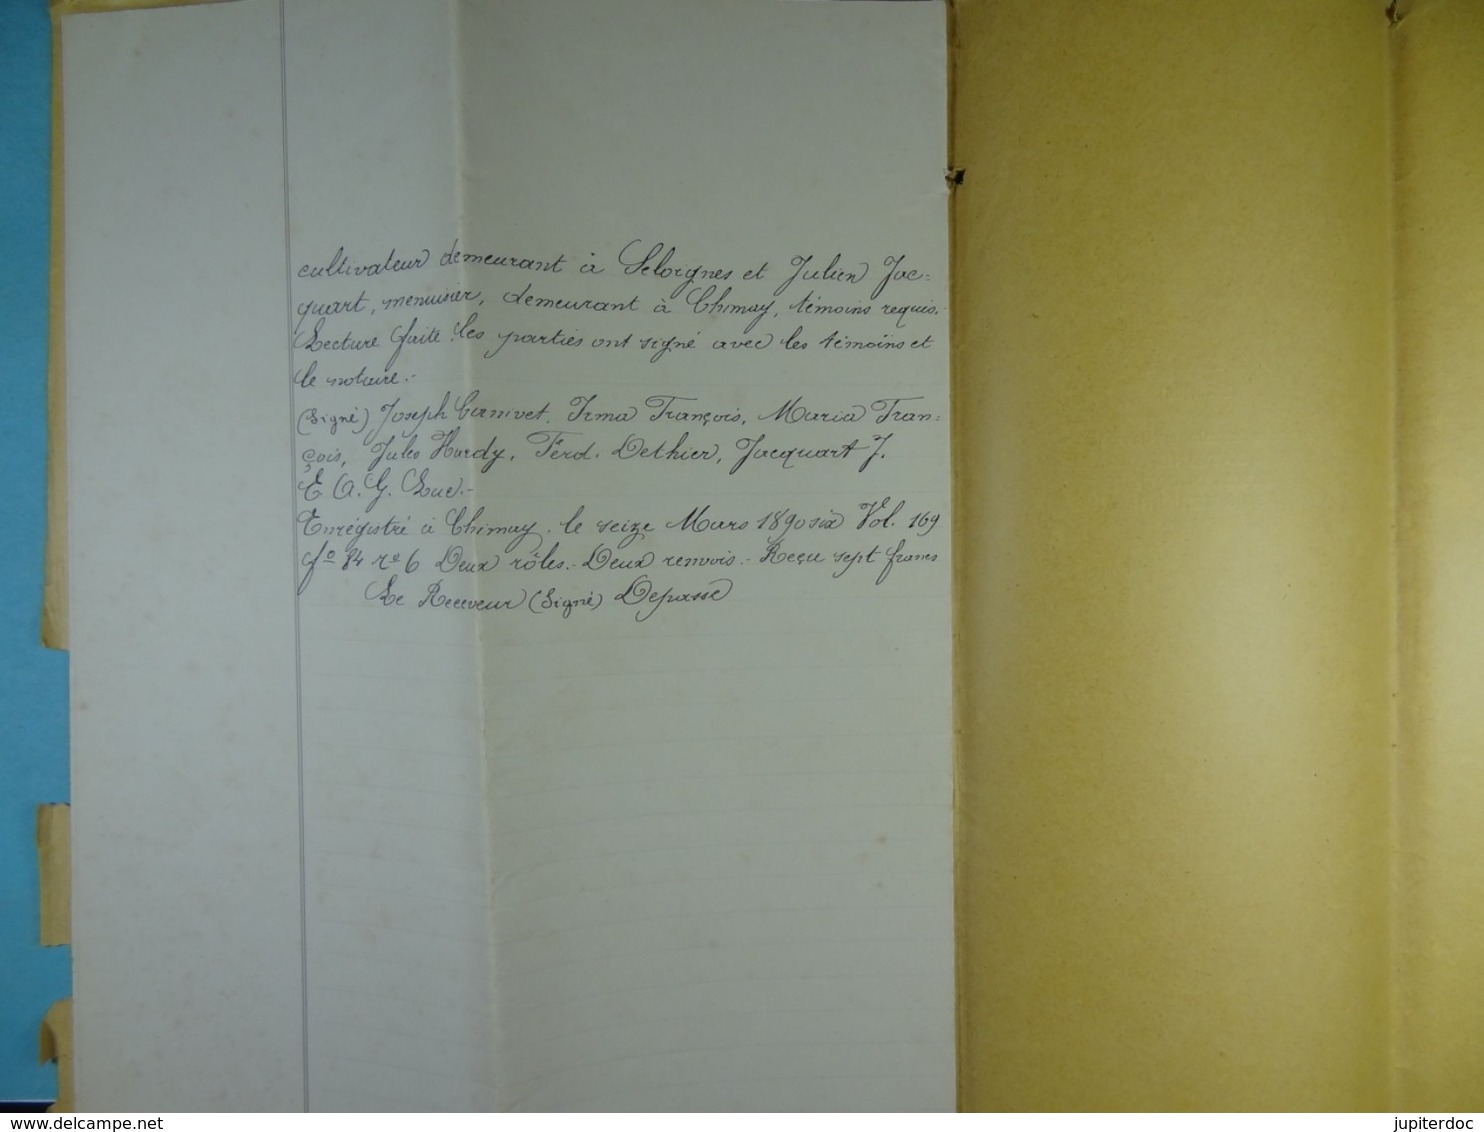 cultivateur demeurant à Seloignes et Julien Jac=
quart, menuisier, demeurant à Chimay, témoins requis.-
Lecture faite, les parties ont signé avec les témoins et
le notaire.-
(Signé) Joseph Canivet, Irma François, Maria Fran=
çois, Jules Hardy, Ferd. Dethier, Jacquart J.
E A. G. Luc.-
Enrégistré à Chimay, le seize Mars 1890six Vol. 169
fo 84 no 6 Deux rôles.- Deux renvois.- Reçu sept francs
Le Receveur (Signé) Depasse
www.delcampe.net
jupiterdoc